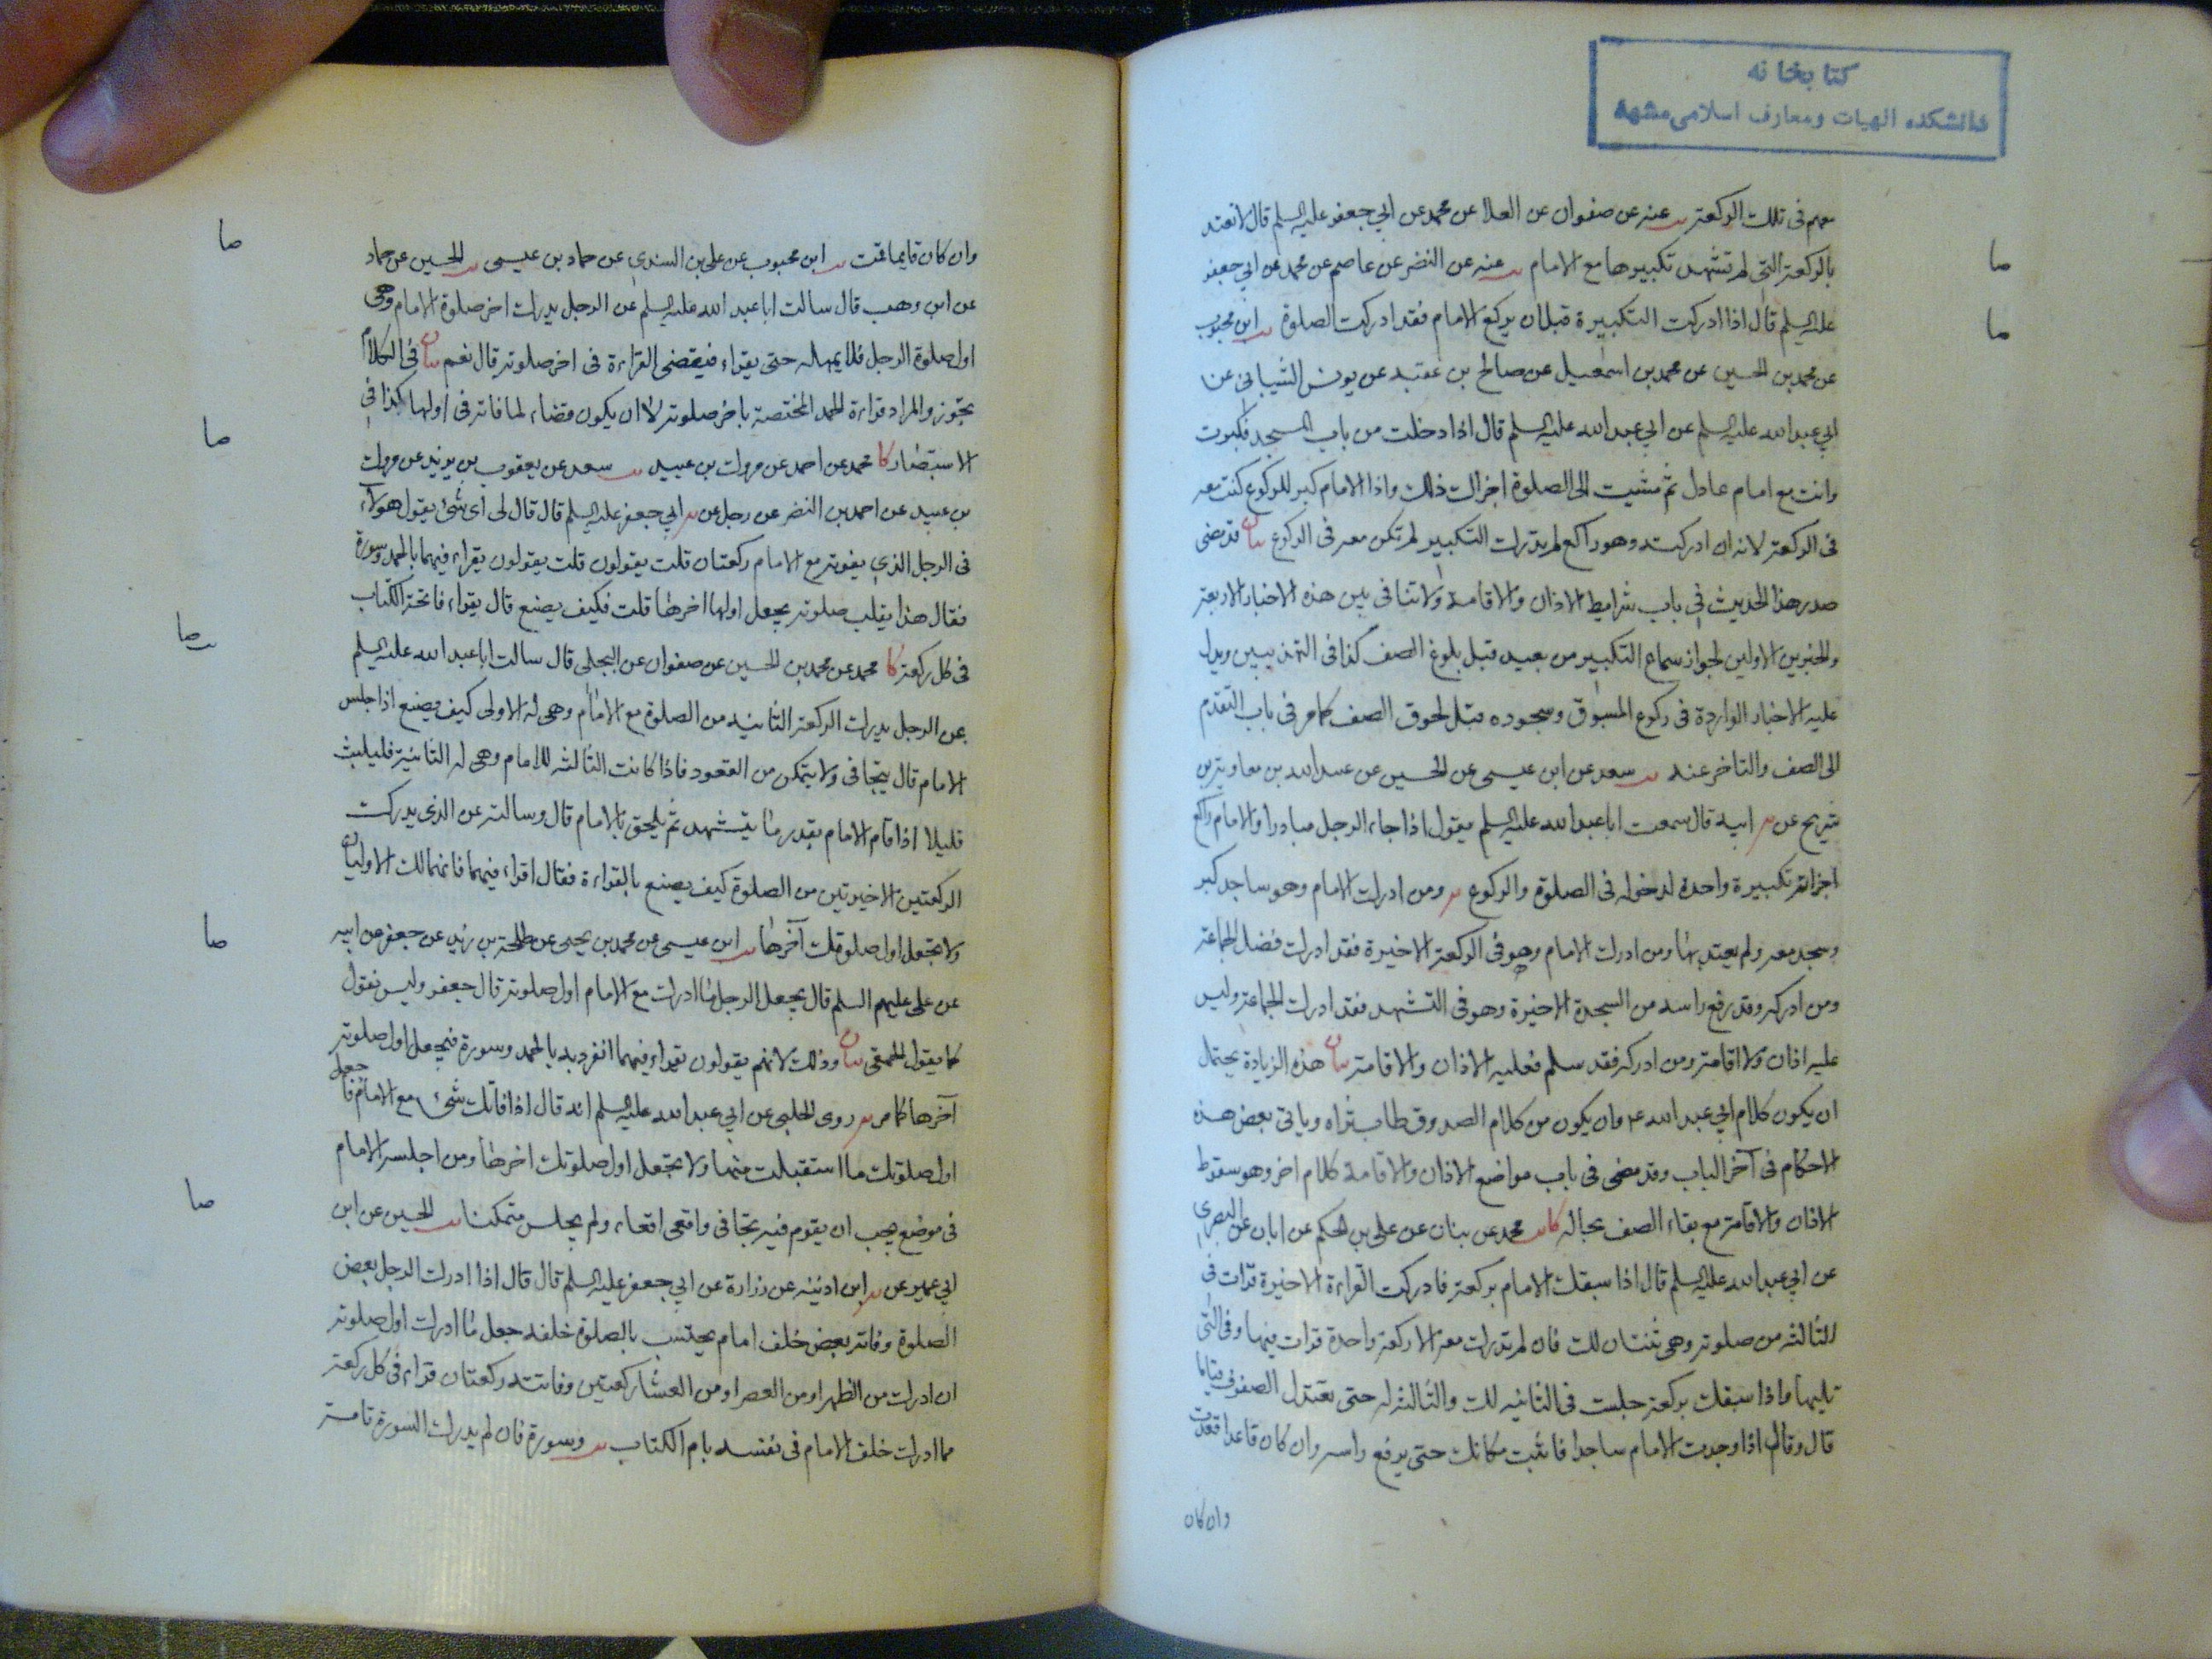 كتابخانه
دانشكده الهيات ومعارف اسلامى مشهد
معهم فى تلك الركعة يب عنه عن صفوان عن العلا عن محمد عن ابي جعفر عليه السلم قال لا تعتد
بالركعة التى لم تشهد تكبيرها مع الامام يب عنه عن النضر عن عاصم عن محمد عن ابي جعفر
عليه السلم قال اذا ادركت التكبيرة قبل ان يركع الامام فقد ادركت الصلوة يب ابن محبوب
عن محمد بن الحسين عن محمد بن اسمعيل عن صالح بن عقبة عن يونس الشيبانى عن
ابي عبد الله عليه السلم عن ابي عبد الله عليه السلم قال اذا دخلت من باب المسجد فكبرت
وانت مع امام عادل ثم مشيت الى الصلوة اجزاك ذلك واذا الامام كبر للركوع كنت معه
فى الركعة لانه ان ادركته وهو راكع لم تدرك التكبير لم تكن معه فى الركوع بيان قد مضى
صدر هذا الحديث في باب شرايط الاذان والاقامة ولا تنافى بين هذه الاخبار الاربعة
والخبرين الاولين لجواز سماع التكبير من بعيد قبل بلوغ الصف كذا فى التهذيبين ويدل
عليه الاخبار الواردة فى ركوع المسبوق وسجوده قبل لحوق الصف كما مر فى باب التقدم
الى الصف والتاخر عنه يب سعد عن ابن عيسى عن الحسين عن عبد الله بن معاوية بن
شريح عن يه ابيه قال سمعت ابا عبد الله عليه السلم يقول اذا جاء الرجل مبادرا والامام راكع
اجزاته تكبيرة واحدة لدخوله فى الصلوة والركوع يه ومن ادرك الامام وهو ساجد كبر
وسجد معه ولم يعتد بها ومن ادرك الامام وهو فى الركعة الاخيرة فقد ادرك فضل الجماعة
ومن ادركه وقد رفع راسه من السجدة الاخيرة وهو فى التشهد فقد ادرك الجماعة وليس
عليه اذان ولا اقامة ومن ادركه فقد سلم فعليه الاذان والاقامة بيان هذه الزيادة يحتمل
ان يكون كلام ابي عبد الله ع وان يكون من كلام الصدوق طاب ثراه وياتى بعض هذه
الاحكام فى آخر الباب وقد مضى فى باب مواضع الاذان والاقامة كلام اخر وهو سقوط
الاذان والاقامة مع بقاء الصف بحاله كا يب محمد عن بنان عن على بن الحكم عن ابان عن البصرى
عن ابي عبد الله عليه السلم قال اذا سبقك الامام بركعة فادركت القراءة الاخيرة قرات فى
الثالثة من صلوته وهى ثنتان لك فان لم تدرك معه الا ركعة واحدة قرات فيها وفى التى
تليها واذا سبقك بركعة جلست فى الثانيه لك والثالثة له حتى تعتدل الصفوف قياما
قال وقال اذا وجدت الامام ساجدا فاثبت مكانك حتى يرفع راسه وان كان قاعدا قعدت
وان كان
صا
صا
وان كان قايما قمت يب ابن محبوب عن على بن السندى عن حماد بن عيسى يب الحسين عن حماد
عن ابن وهب قال سالت ابا عبد الله عليه السلم عن الرجل يدرك اخر صلوة الامام وهى
اول صلوة الرجل فلا يمهله حتى يقراء فيقضى القراءة فى اخر صلوته قال نعم بيان فى الكلام
تجوز والمراد قراءة الحمد المختصة باخر صلوته لا ان يكون قضاء لما فاته فى اولها كذا فى
الاستبصار كا محمد عن احمد عن مروك بن عبيد يب سعد عن يعقوب بن يزيد عن مروك
بن عبيد عن احمد بن النضر عن رجل عن يه ابي جعفر عليه السلم قال قال لى اى شئ يقول هولآء
فى الرجل الذى يفوته مع الامام ركعتان قلت يقولون قلت يقولون يقراء فيهما بالحمد وسورة
فقال هذا يقلب صلوته يجعل اولها اخرها قلت فكيف يصنع قال يقراء فاتحة الكتاب
فى كل ركعة كا محمد عن محمد بن الحسين عن صفوان عن البجلى قال سالت ابا عبد الله عليه السلم
عن الرجل يدرك الركعة الثانيه من الصلوة مع الامام وهى له الاولى كيف يصنع اذا جلس
الامام قال يتجافى ولا يتمكن من القعود فاذا كانت الثالثه للامام وهى له الثانية فليلبث
قليلا اذا قام الامام بقدر ما يتشهد ثم يلحق بالامام قال وسالته عن الذى يدرك
الركعتين الاخيرتين من الصلوة كيف يصنع بالقراءة فقال اقراء فيهما فانهما لك الاوليان
ولا تجعل اول صلوتك آخرها يب ابن عيسى عن محمد بن يحيى عن طلحة بن زيد عن جعفر عن ابيه
عن على عليهم السلم قال يجعل الرجل ما ادرك مع الامام اول صلوته قال جعفر وليس نقول
كما يقول الحمقى بيان وذلك لانهم يقولون يقراء فيهما انفرد به بالحمد وسورة فيجعل اول صلوته
آخرها كما مر يه روى الحلبى عن ابي عبد الله عليه السلم انه قال اذا فاتك شئ مع الامام فاجعل
اول صلوتك ما استقبلت منها ولا تجعل اول صلوتك اخرها ومن اجلسه الامام
فى موضع يجب ان يقوم فيه تجافى واقعى اقعاء ولم يجلس متمكنا يب الحسين عن ابن
ابي عمير عن يه ابن اذينه عن زرارة عن ابي جعفر عليه السلم قال قال اذا ادرك الرجل بعض
الصلوة وفاته بعض خلف امام يحتسب بالصلوة خلفه جعل ما ادرك اول صلوته
ان ادرك من الظهر او من العصر او من العشا ركعتين وفاتته ركعتان قراء فى كل ركعة
مما ادرك خلف الامام فى نفسه بام الكتاب يب وسورة فان لم يدرك السورة تامة
صا
صا
صا
صا
صا